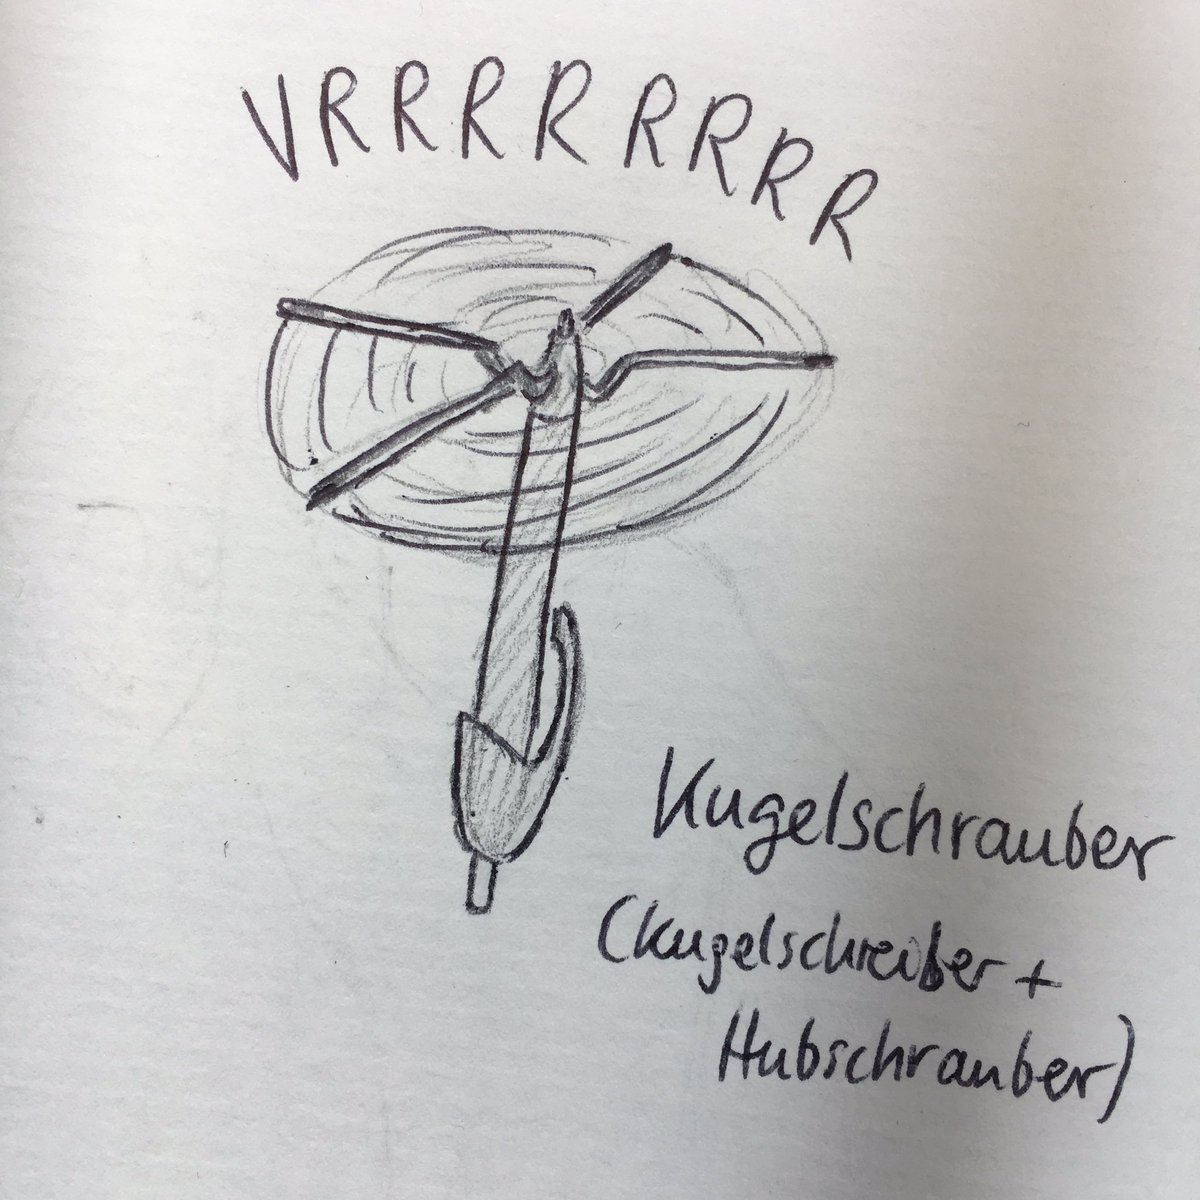 VRRRRRRRR
Kugelschrauber
(Kugelschreiber +
Hubschrauber)